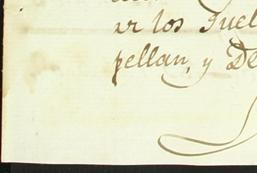 ır los Suel
pellan, y De